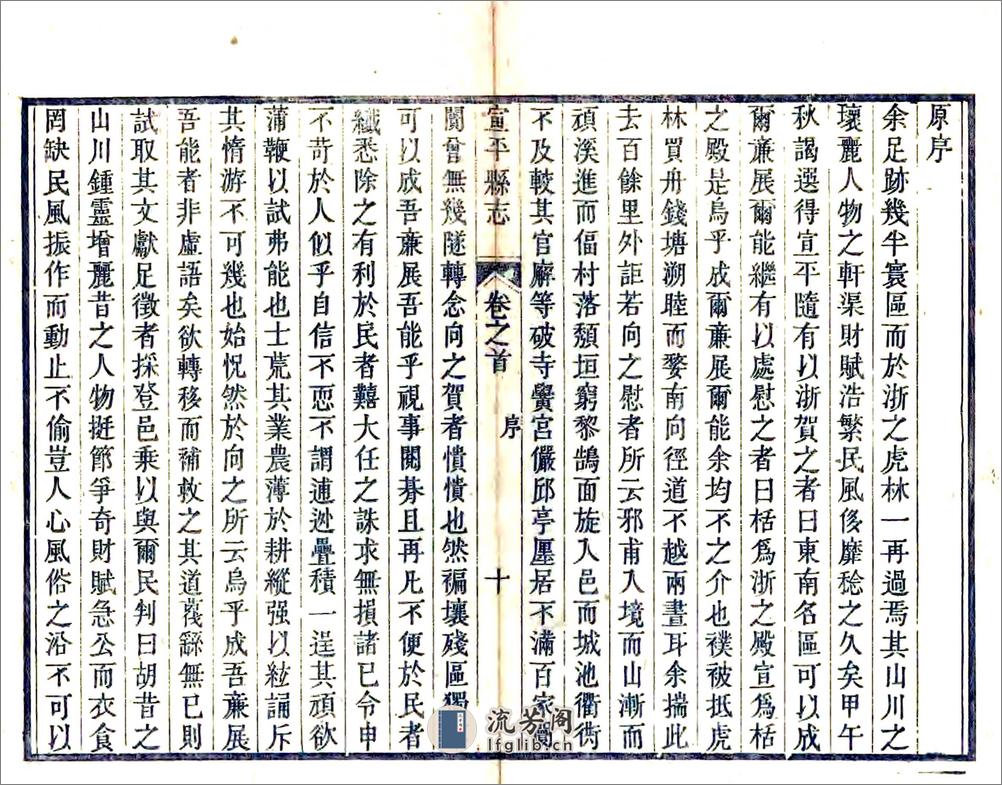 原序
余足跡幾半寰區而於浙之虎林一再過焉其山川之
瓌麗人物之軒渠財賦浩繁民風侈靡稔之久矣甲午
秋謁選得宣平隨有以浙賀之者曰東南名區可以成
爾亷展爾能繼有以處慰之者曰栝爲浙之殿宣爲栝
之殿是烏乎成爾亷展爾能余均不之介也襆被抵虎
林買舟錢塘溯睦而婺南向徑道不越兩晝耳余揣此
去百餘里外詎若向之慰者所云邪甫入境而山漸而
頑溪進而偪村落頽垣窮黎鵠面旋入邑而城池衢衖
不及較其官廨等破寺黌宮儼邱亭廛居不滿百家闠
宣平縣志
卷之首
序
十
闤會無幾隧轉念向之賀者憒憒也然褊壤殘區獨
可以成吾亷展吾能乎視事閱朞且再凡不便於民者
纖悉除之有利於民者囏大任之誅求無損諸已令申
不苛於人似乎自信不恧不謂逋逊疊積一逞其頑欲
蒲鞭以試弗能也士荒其業農薄於耕縱强以紘誦斥
其惰游不可幾也始怳然於向之所云烏乎成吾亷展
吾能者非虛語矣欲轉移而補救之其道蔑繇無已則
試取其文獻足徵者採登邑乘以與爾民判曰胡昔之
山川鍾靈增麗昔之人物挺節爭奇財賦急公而衣食
罔缺民風振作而動止不偷豈人心風俗之沿不可以
流芳阁
lfglib.cn